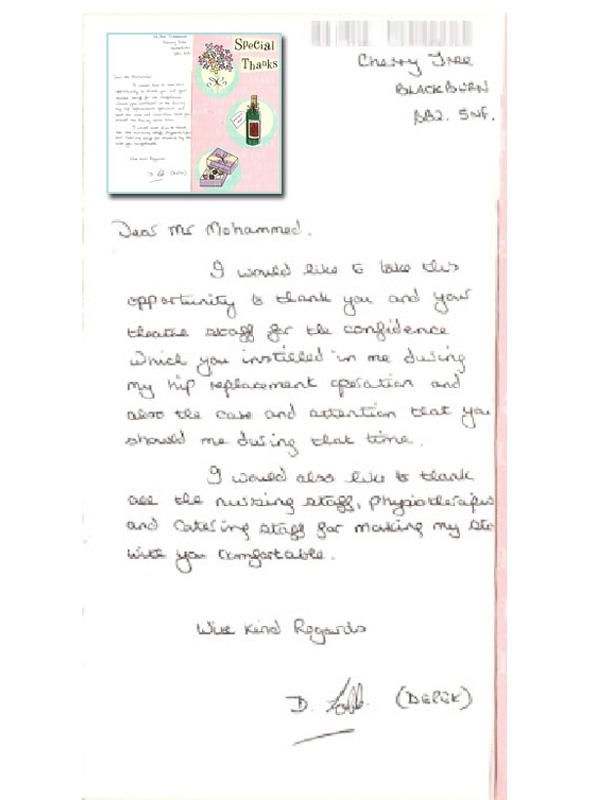 Special
Thanks
Cherry Tree
BLACKBURN
BB2. 5NF.
Dear Mr Mohammed.
I would like to take this
opportunity to thank you and your
theatre staff for the confidence
which you instilled in me during
my hip replacement operation and
also the care and attention that you
should me during that time.
I would also like to thank
all the nursing staff, physiotherapis
and Catering staff for making my sta
with you comfortable.
With Kind Regards
D. (DEREK)